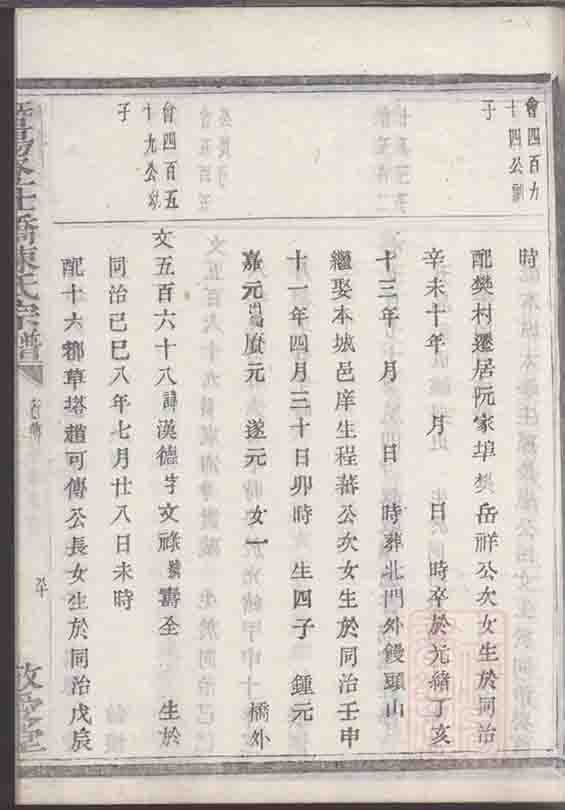 會四百九
十四公
子
時
配樊村遷居阮家埠樊岳祥公次女生於同治
辛未十年 月 日 時卒於光緒丁亥
十三年 月 日 時葬北門外饅頭山
繼娶本城邑庠生程蕃公次女生於同治壬申
十一年四月三十日卯時 生四子 鍾元
嘉元 賡元 遂元 女一 橋外
會四百五
十九公
子
文五百六十八諱漢德字文祿號壽全 生於
同治己巳八年七月廿八日未時
配十六都草塔趙可傳公長女生於同治戊辰
橋陳氏宗譜
敬愛堂